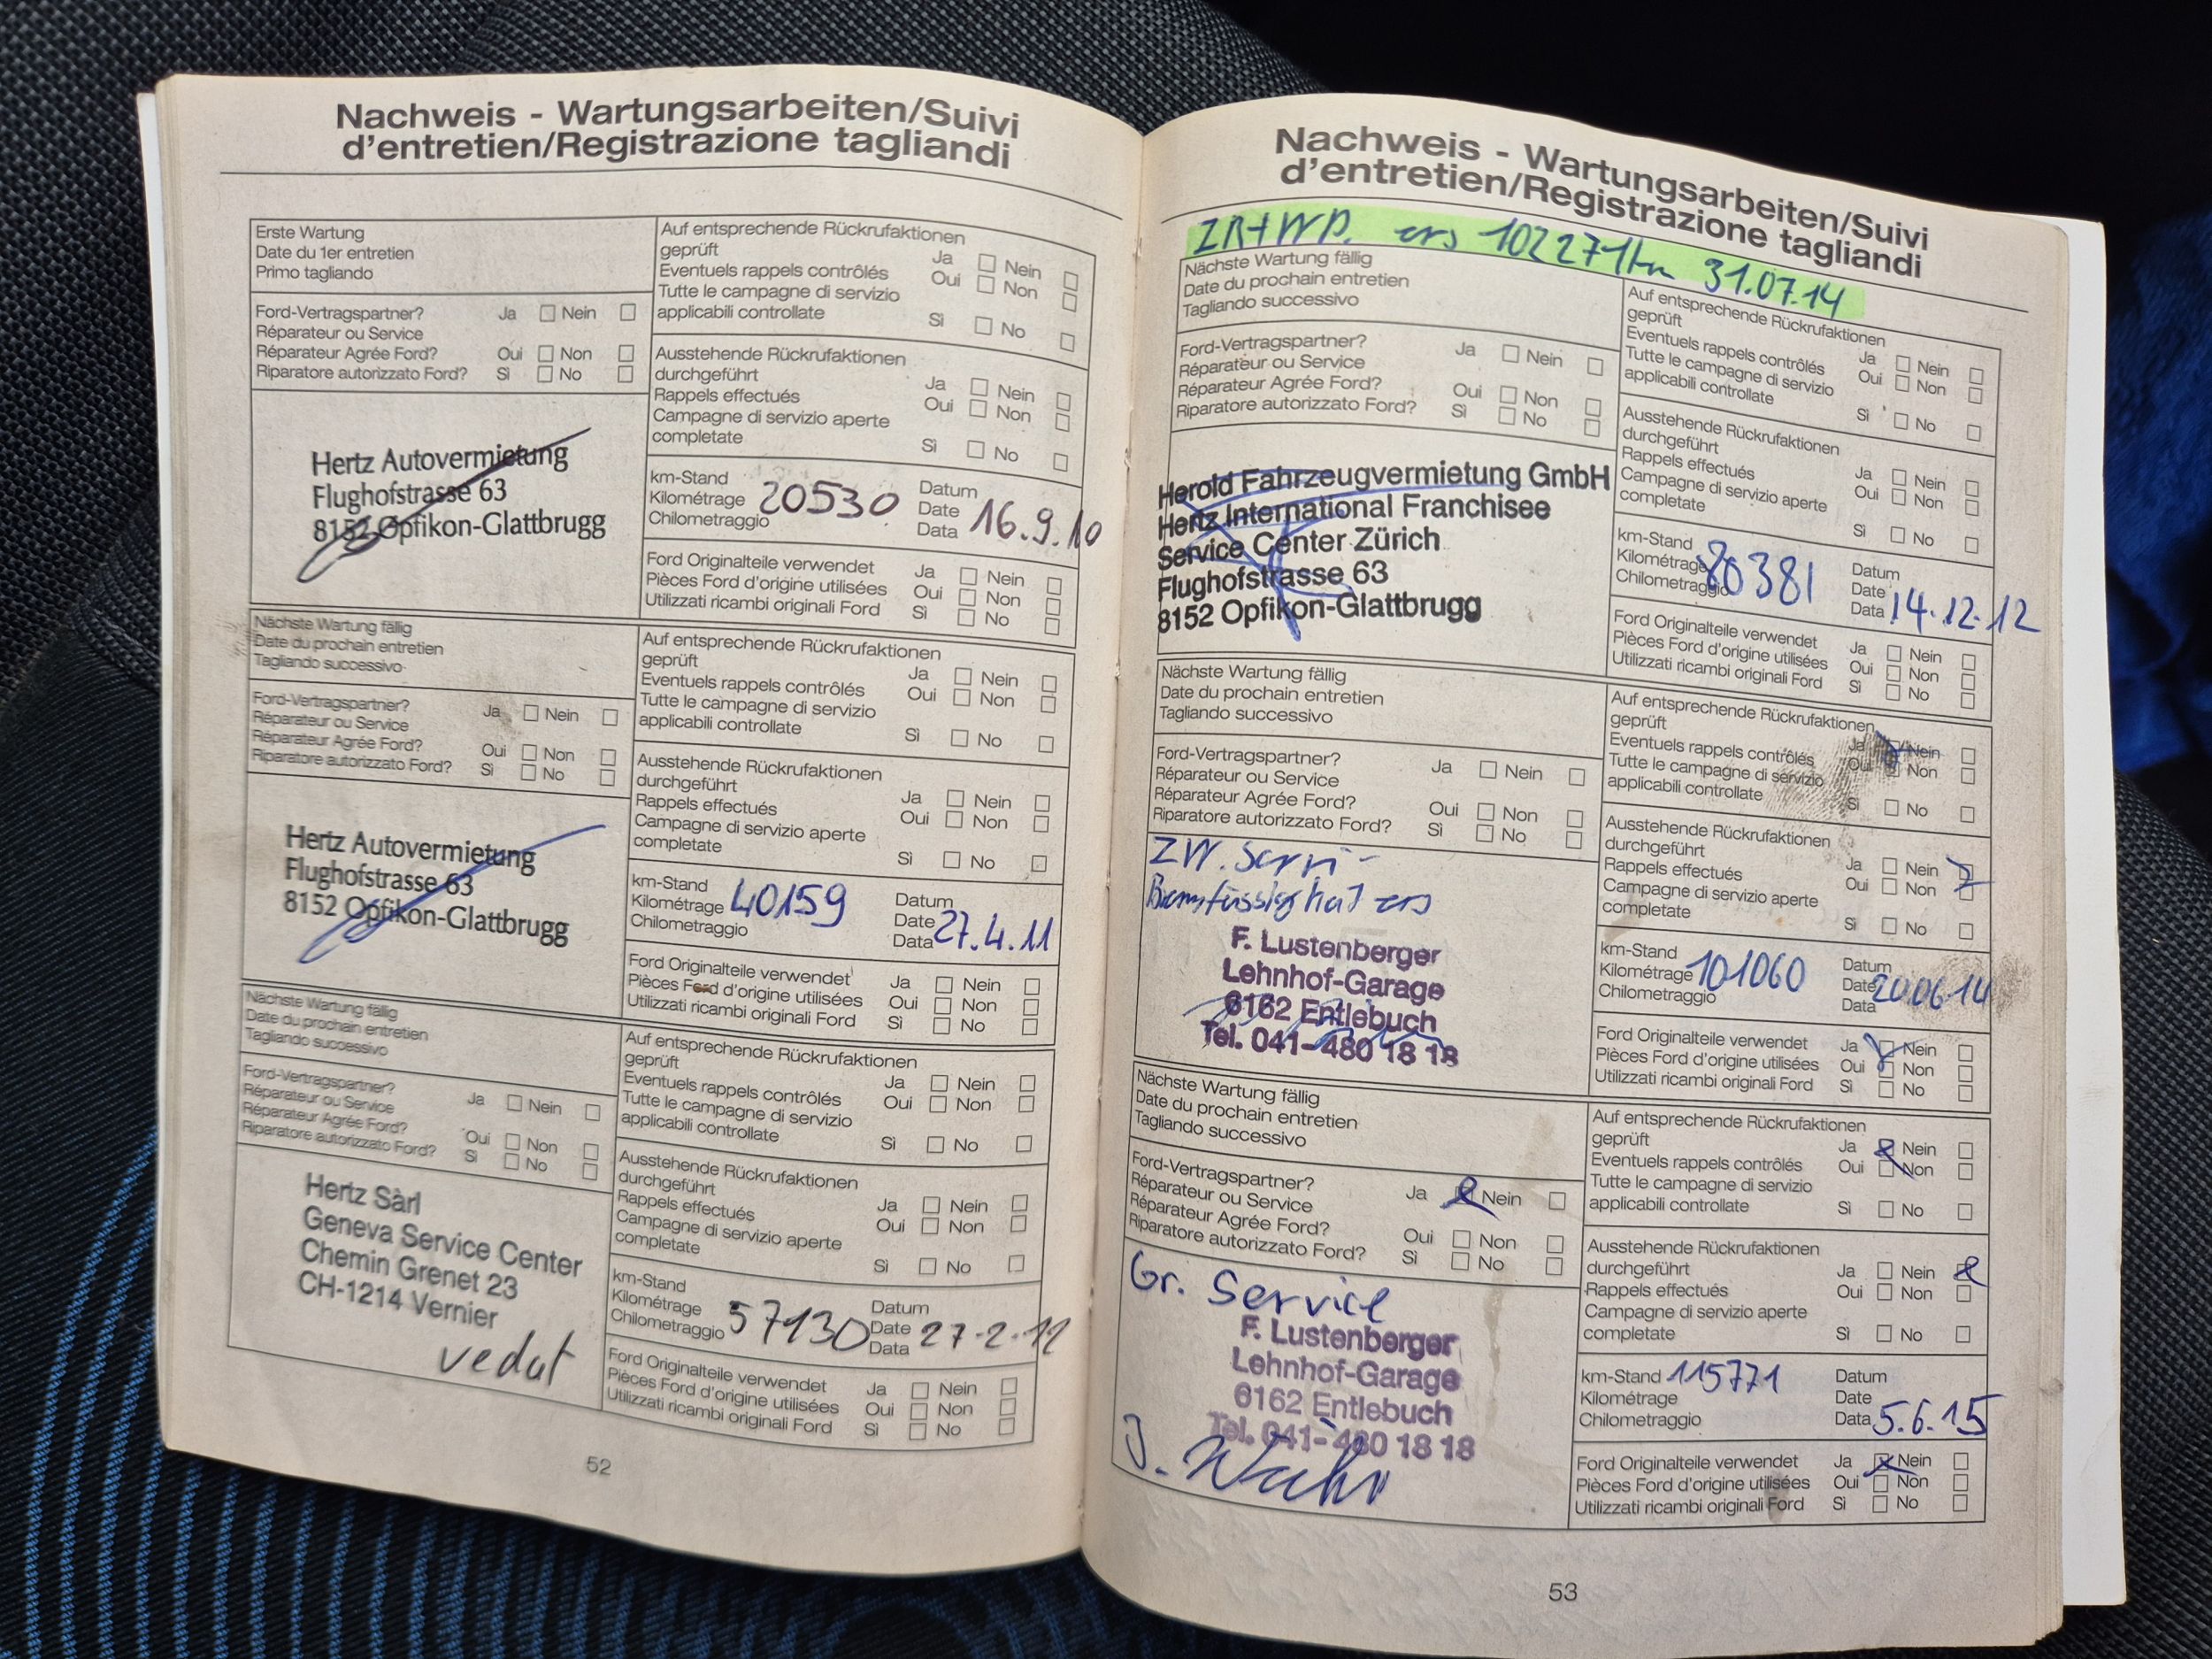 Nachweis - Wartungsarbeiten/Suivi
d'entretien/Registrazione tagliandi
Erste Wartung
Date du 1er entretien
Primo tagliando
Ford-Vertragspartner? Ja Nein
Réparateur ou Service
Réparateur Agrée Ford? Oui Non
Riparatore autorizzato Ford? Sì No
Hertz Autovermietung
Flughofstrasse 63
8152 Opfikon-Glattbrugg
Auf entsprechende Rückrufaktionen
geprüft Ja Nein
Eventuels rappels contrôlés Oui Non
Tutte le campagne di servizio
applicabili controllate Sì No
Ausstehende Rückrufaktionen
durchgeführt Ja Nein
Rappels effectués Oui Non
Campagne di servizio aperte
completate Sì No
km-Stand Datum
Kilométrage 20530 Date 16.9.10
Chilometraggio Data
Ford Originalteile verwendet Ja Nein
Pièces Ford d'origine utilisées Oui Non
Utilizzati ricambi originali Ford Sì No
Nächste Wartung fällig
Date du prochain entretien
Tagliando successivo
Ford-Vertragspartner? Ja Nein
Réparateur ou Service
Réparateur Agrée Ford? Oui Non
Riparatore autorizzato Ford? Sì No
Hertz Autovermietung
Flughofstrasse 63
8152 Opfikon-Glattbrugg
Auf entsprechende Rückrufaktionen
geprüft Ja Nein
Eventuels rappels contrôlés Oui Non
Tutte le campagne di servizio
applicabili controllate Sì No
Ausstehende Rückrufaktionen
durchgeführt Ja Nein
Rappels effectués Oui Non
Campagne di servizio aperte
completate Sì No
km-Stand Datum
Kilométrage 40159 Date 27.4.11
Chilometraggio Data
Ford Originalteile verwendet Ja Nein
Pièces Ford d'origine utilisées Oui Non
Utilizzati ricambi originali Ford Sì No
Nächste Wartung fällig
Date du prochain entretien
Tagliando successivo
Ford-Vertragspartner? Ja Nein
Réparateur ou Service
Réparateur Agrée Ford? Oui Non
Riparatore autorizzato Ford? Sì No
Hertz Sàrl
Geneva Service Center
Chemin Grenet 23
CH-1214 Vernier
vedat
Auf entsprechende Rückrufaktionen
geprüft Ja Nein
Eventuels rappels contrôlés Oui Non
Tutte le campagne di servizio
applicabili controllate Sì No
Ausstehende Rückrufaktionen
durchgeführt Ja Nein
Rappels effectués Oui Non
Campagne di servizio aperte
completate Sì No
km-Stand Datum
Kilométrage 57130 Date 27-2-12
Chilometraggio Data
Ford Originalteile verwendet Ja Nein
Pièces Ford d'origine utilisées Oui Non
Utilizzati ricambi originali Ford Sì No
52
Nachweis - Wartungsarbeiten/Suivi
d'entretien/Registrazione tagliandi
ZR+WP. ers 102271km 31.07.14
Nächste Wartung fällig
Date du prochain entretien
Tagliando successivo
Ford-Vertragspartner? Ja Nein
Réparateur ou Service
Réparateur Agrée Ford? Oui Non
Riparatore autorizzato Ford? Sì No
Herold Fahrzeugvermietung GmbH
Hertz International Franchisee
Service Center Zürich
Flughofstrasse 63
8152 Opfikon-Glattbrugg
Auf entsprechende Rückrufaktionen
geprüft Ja Nein
Eventuels rappels contrôlés Oui Non
Tutte le campagne di servizio
applicabili controllate Sì No
Ausstehende Rückrufaktionen
durchgeführt Ja Nein
Rappels effectués Oui Non
Campagne di servizio aperte
completate Sì No
km-Stand Datum
Kilométrage 80381 Date 14.12.12
Chilometraggio Data
Ford Originalteile verwendet Ja Nein
Pièces Ford d'origine utilisées Oui Non
Utilizzati ricambi originali Ford Sì No
Nächste Wartung fällig
Date du prochain entretien
Tagliando successivo
Ford-Vertragspartner? Ja Nein
Réparateur ou Service
Réparateur Agrée Ford? Oui Non
Riparatore autorizzato Ford? Sì No
ZW.
ers
F. Lustenberger
Lehnhof-Garage
6162 Entlebuch
Tel. 041-480 18 18
Auf entsprechende Rückrufaktionen
geprüft Ja Nein
Eventuels rappels contrôlés Oui Non
Tutte le campagne di servizio
applicabili controllate Sì No
Ausstehende Rückrufaktionen
durchgeführt Ja Nein
Rappels effectués Oui Non
Campagne di servizio aperte
completate Sì No
km-Stand Datum
Kilométrage 101060 Date 20.06.14
Chilometraggio Data
Ford Originalteile verwendet Ja Nein
Pièces Ford d'origine utilisées Oui Non
Utilizzati ricambi originali Ford Sì No
Nächste Wartung fällig
Date du prochain entretien
Tagliando successivo
Ford-Vertragspartner? Ja Nein
Réparateur ou Service
Réparateur Agrée Ford? Oui Non
Riparatore autorizzato Ford? Sì No
Gr. Service
F. Lustenberger
Lehnhof-Garage
6162 Entlebuch
Tel. 041-480 18 18
Auf entsprechende Rückrufaktionen
geprüft Ja Nein
Eventuels rappels contrôlés Oui Non
Tutte le campagne di servizio
applicabili controllate Sì No
Ausstehende Rückrufaktionen
durchgeführt Ja Nein
Rappels effectués Oui Non
Campagne di servizio aperte
completate Sì No
km-Stand 115771 Datum
Kilométrage Date
Chilometraggio Data 5.6.15
Ford Originalteile verwendet Ja Nein
Pièces Ford d'origine utilisées Oui Non
Utilizzati ricambi originali Ford Sì No
53